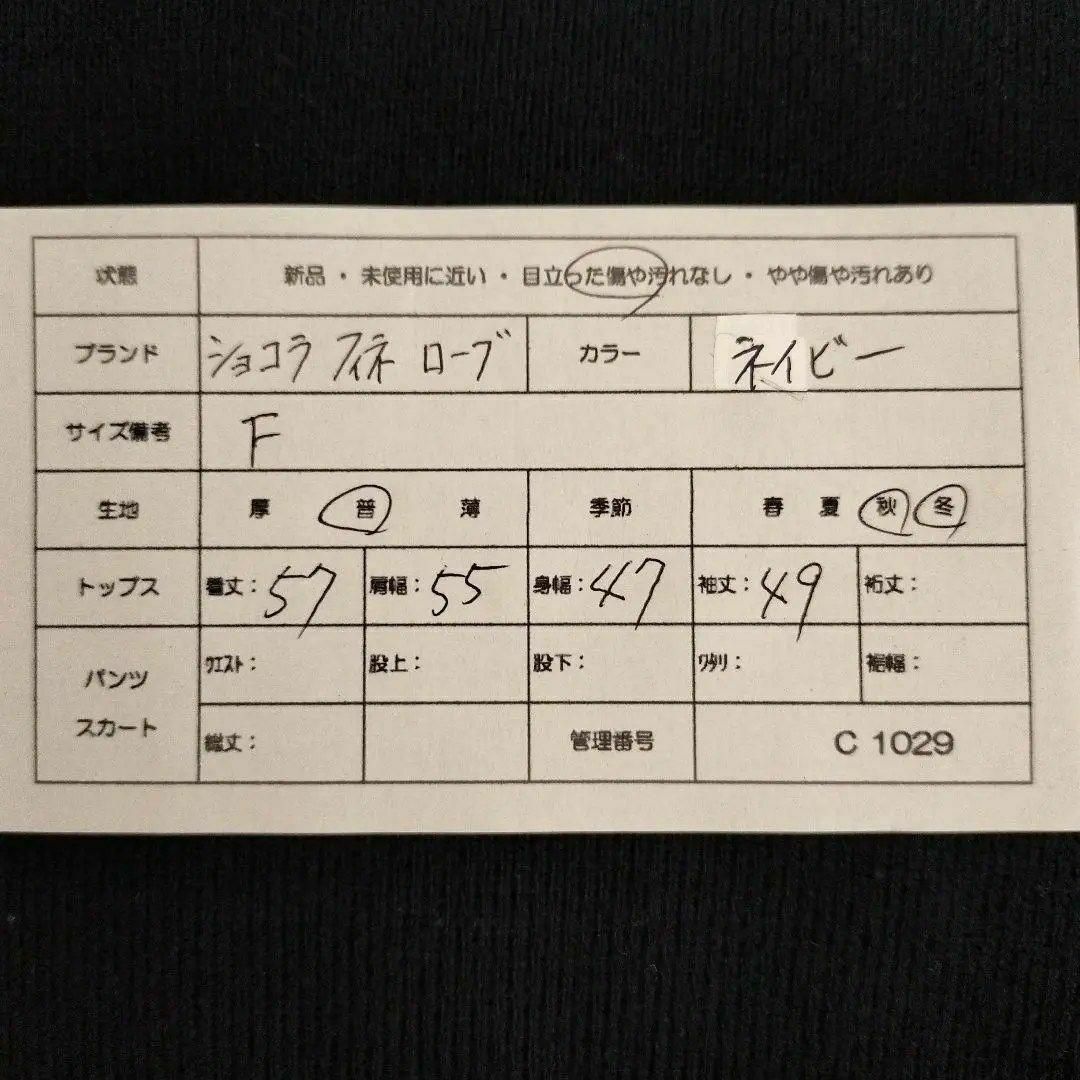 状態 新品・未使用に近い・目立った傷や汚れなし・やや傷や汚れあり
ブランド ショコラ フィネ ローブ カラー ネイビー
サイズ備考 F
生地 厚 普 薄 季節 春 夏 秋 冬
トップス 着丈：57 肩幅：55 身幅：47 袖丈：49 裄丈：
パンツ ウエスト： 股上： 股下： ワタリ： 裾幅：
スカート 総丈： 管理番号 C 1029